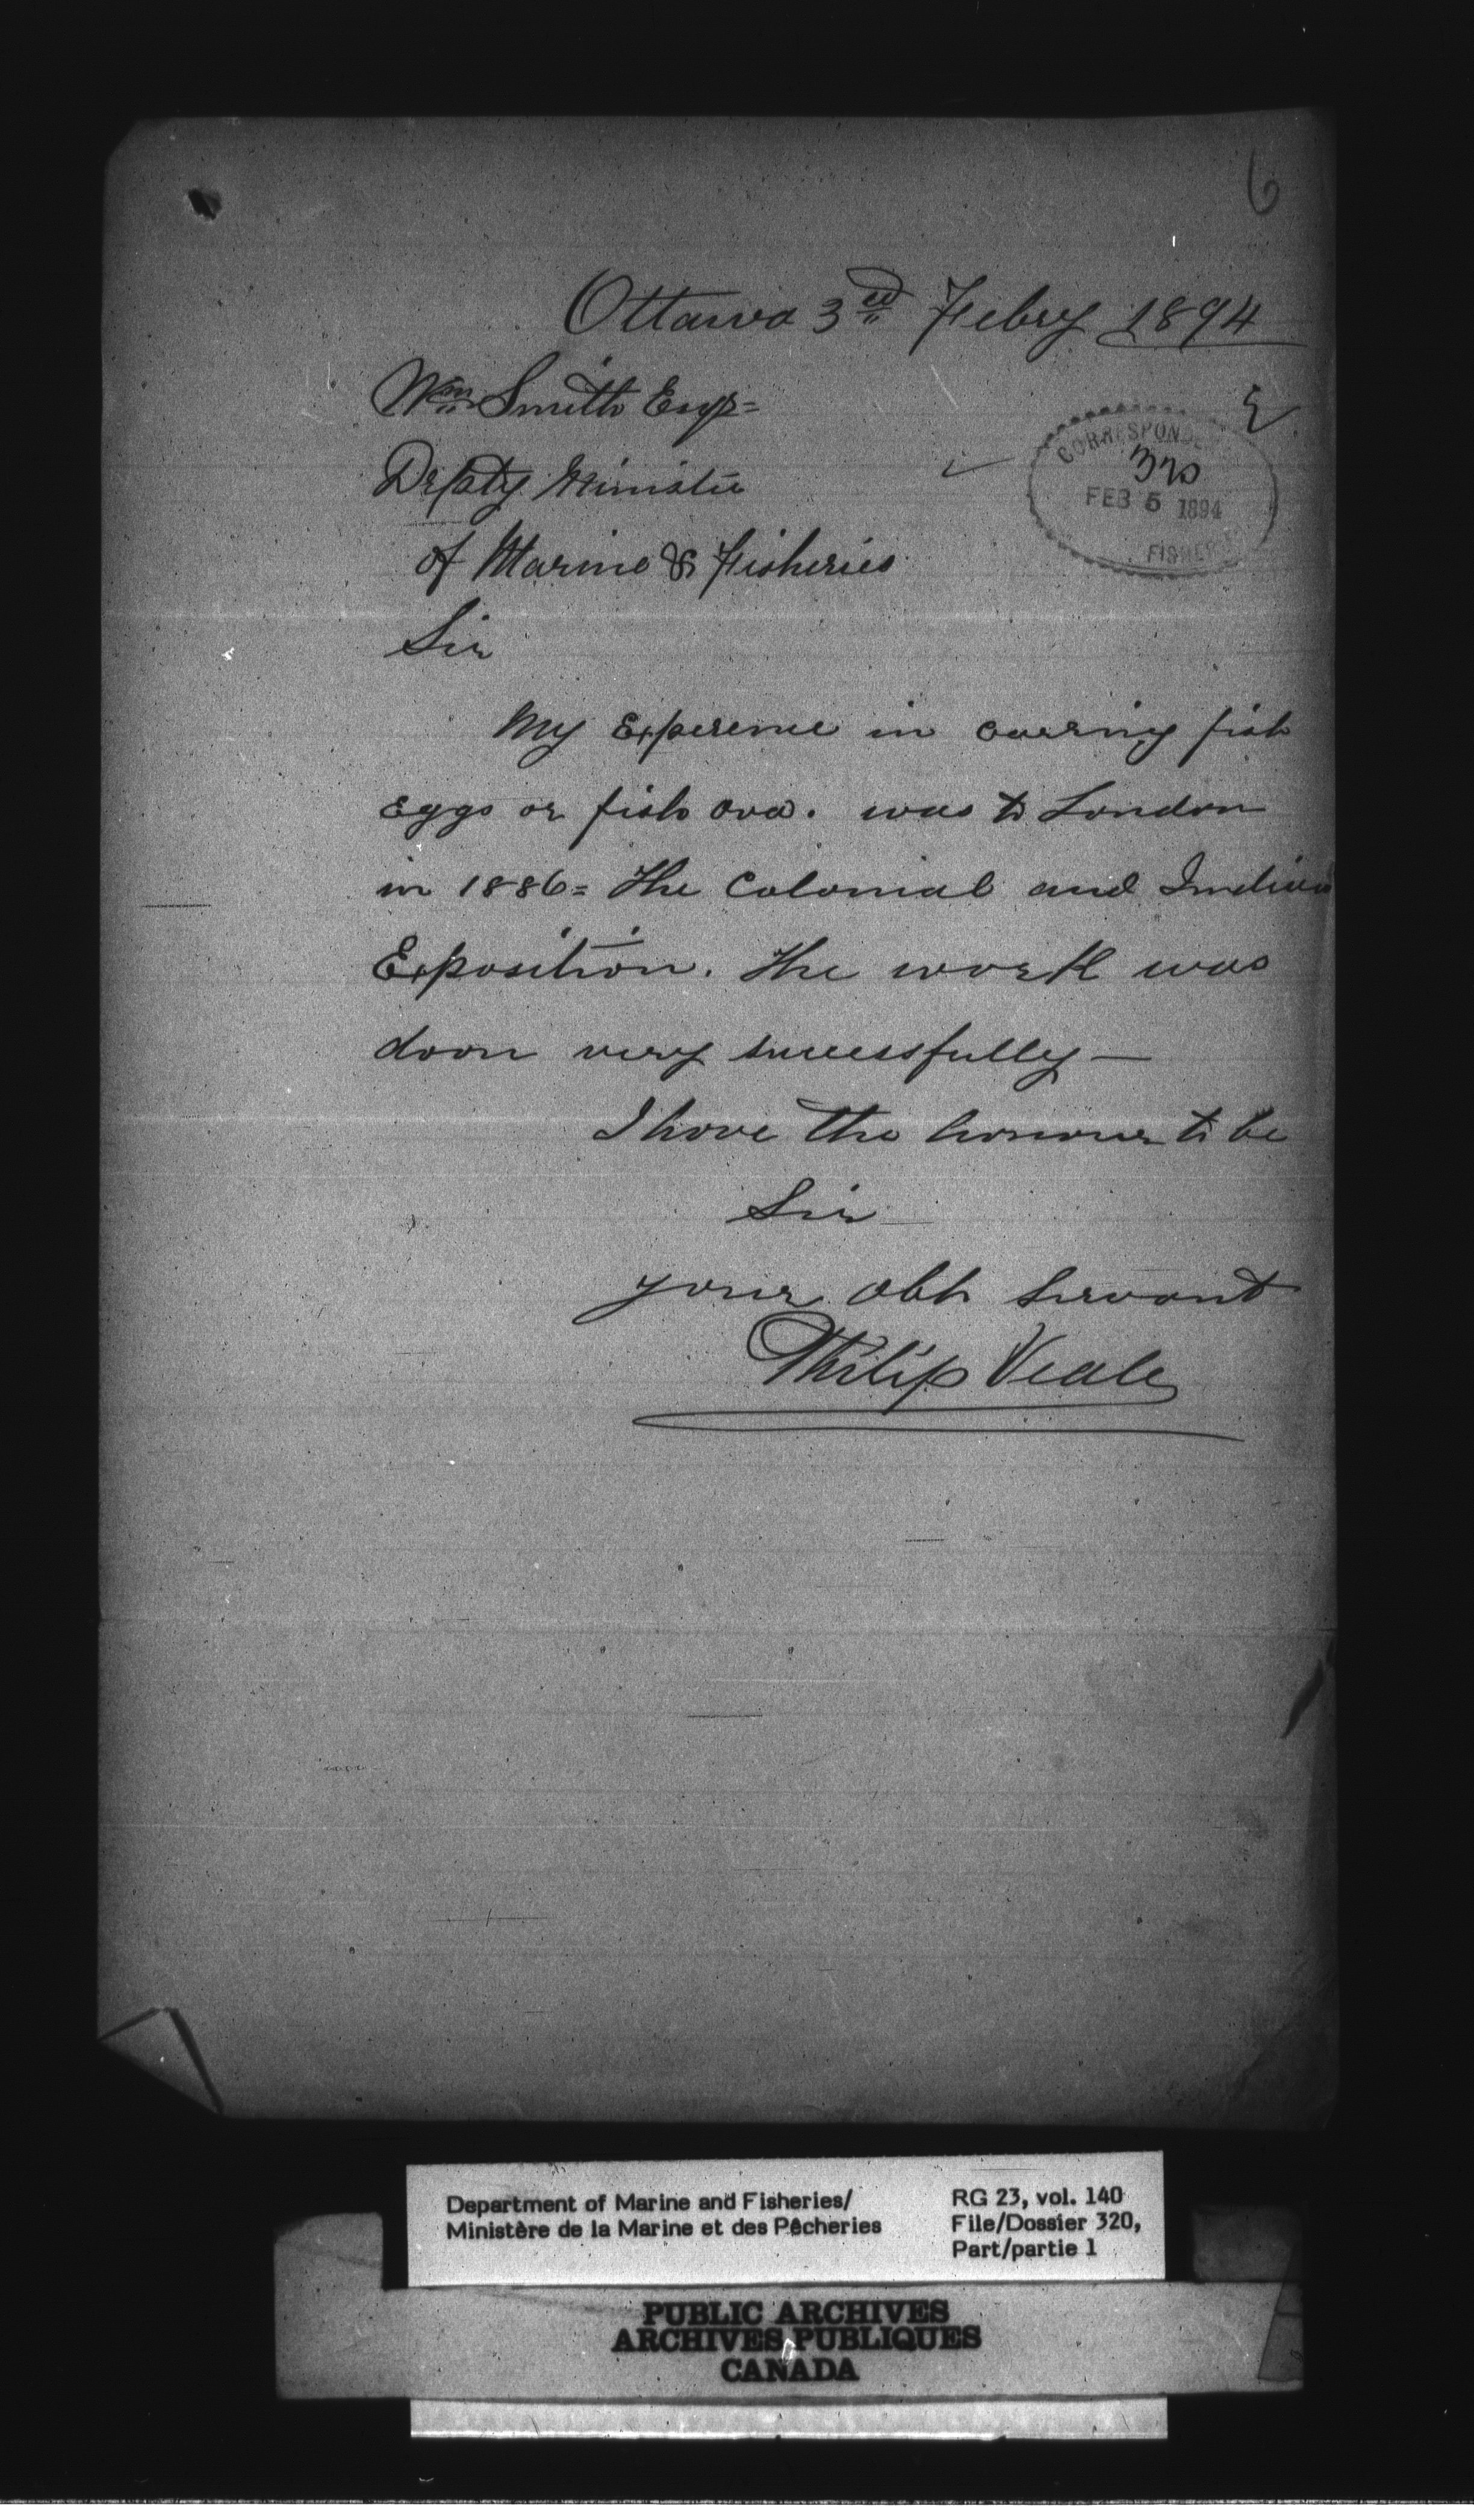 6
Ottawa 3rd Febry 1894
Wm Smith Esqr=
Deputy Minister
of Marine & Fisheries
CORRESPONDE
320
FEB 5 1894
FISHERIES
Sir
My Experence in carring fish
Eggs or fish ova. was to London
in 1886= The Colonial and Indian
Exposition. The work was
doon very successfully—
I have the honour to be
Sir
your obt Servant
Philip Veale
Department of Marine and Fisheries/
Ministère de la Marine et des Pêcheries
RG 23, vol. 140
File/Dossier 320,
Part/partie 1
PUBLIC ARCHIVES
ARCHIVES PUBLIQUES
CANADA